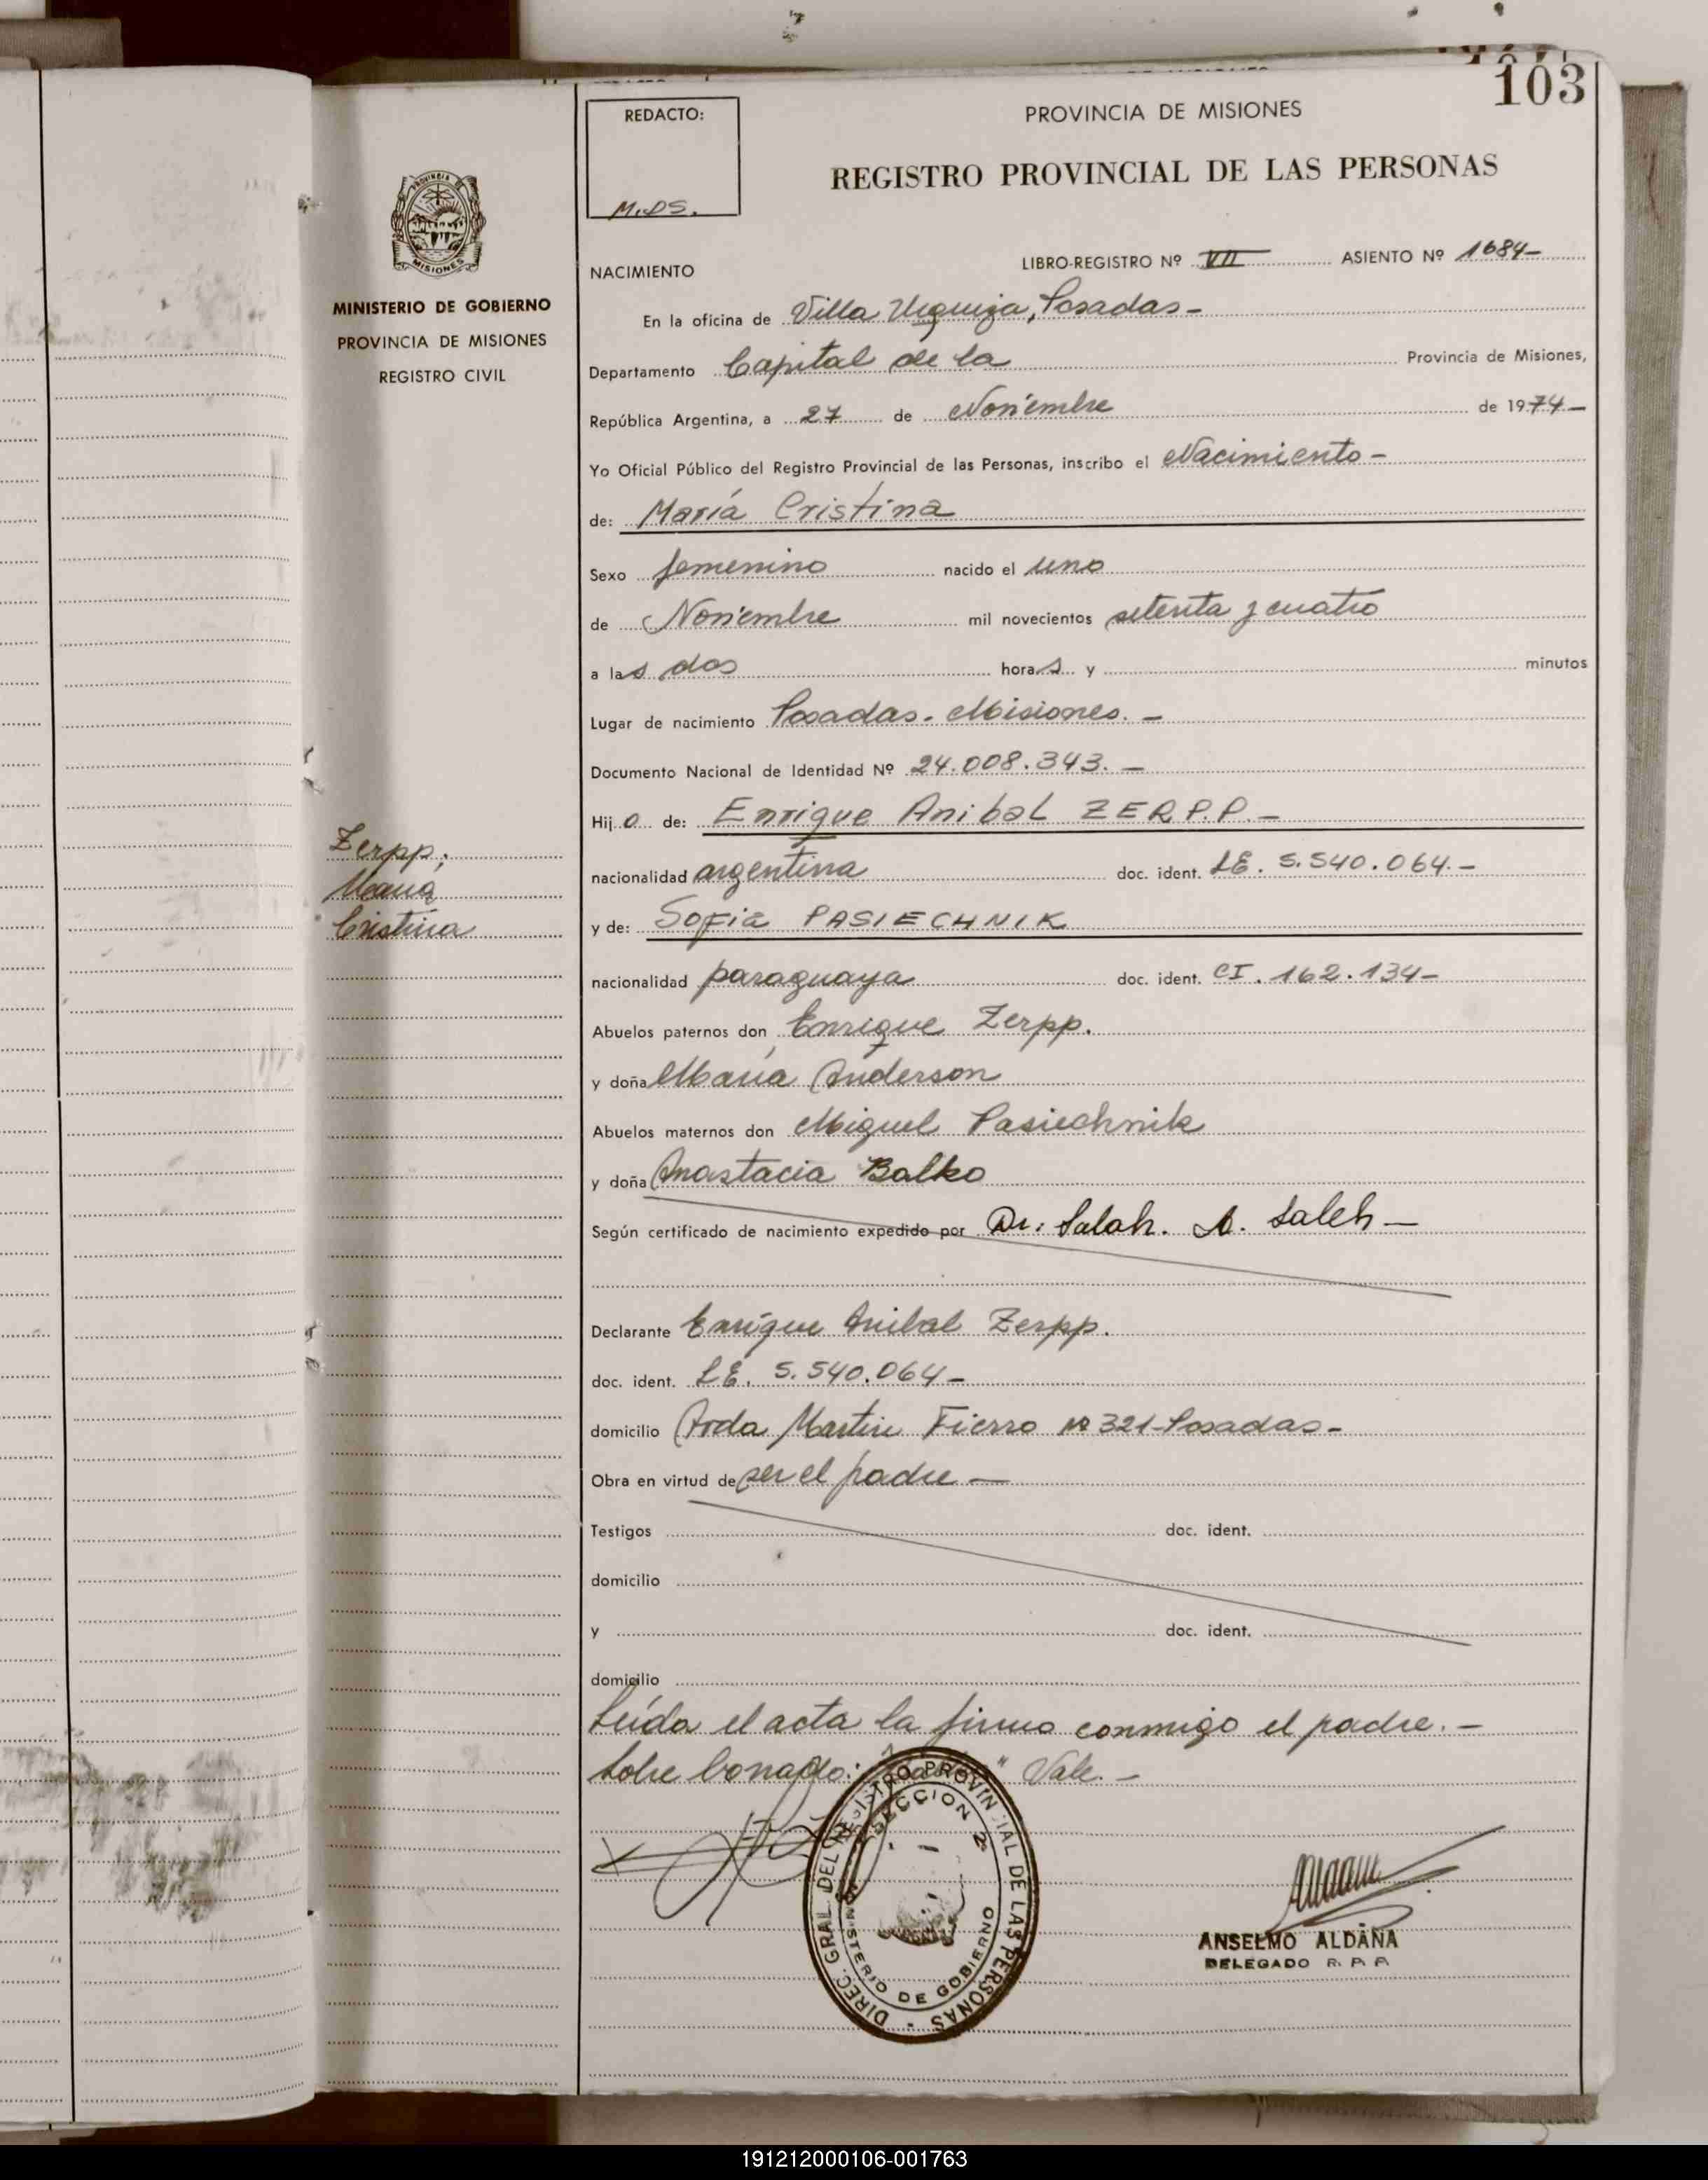 103
REDACTO:
M.DS.
PROVINCIA DE MISIONES
REGISTRO PROVINCIAL DE LAS PERSONAS
PROVINCIA DE MISIONES
MINISTERIO DE GOBIERNO
PROVINCIA DE MISIONES
REGISTRO CIVIL
NACIMIENTO LIBRO-REGISTRO Nº VII ASIENTO Nº 1684-
En la oficina de Villa Urquiza, Posadas-
Departamento Capital de la Provincia de Misiones,
República Argentina, a 27 de Noviembre de 1974-
Yo Oficial Público del Registro Provincial de las Personas, inscribo el Nacimiento-
de: María Cristina
Sexo femenino nacido el uno
de Noviembre mil novecientos setenta y cuatro
a las dos horas y minutos
Lugar de nacimiento Posadas-Misiones.-
Documento Nacional de Identidad Nº 24.008.343.-
Hijo de: Enrique Anibal ZERP.P.-
Zerpp;
María
Cristina
nacionalidad argentina doc. ident. LE. 5.540.064.-
y de: Sofia PASIECHNIK
nacionalidad paraguaya doc. ident. CI. 162.134-
Abuelos paternos don Enrique Zerpp.
y doña María Anderson
Abuelos maternos don Miguel Pasiechnik
y doña Anastacia Balko
Según certificado de nacimiento expedido por Dr: Salah. A. Saleh-
Declarante Enrique Anibal Zerpp.
doc. ident. LE. 5.540.064-
domicilio Avda Martin Fierro Nº 321-Posadas-
Obra en virtud de ser el padre-
Testigos doc. ident.
domicilio
y doc. ident.
domicilio
Leída el acta la firma conmigo el padre.-
Sobre borrado: " Vale.-
DIREC. GRAL. DEL REGISTRO PROVINCIAL DE LAS PERSONAS -
SECCION 2ª
MINISTERIO DE GOBIERNO
ANSELMO ALDANA
DELEGADO R. P. P.
191212000106-001763